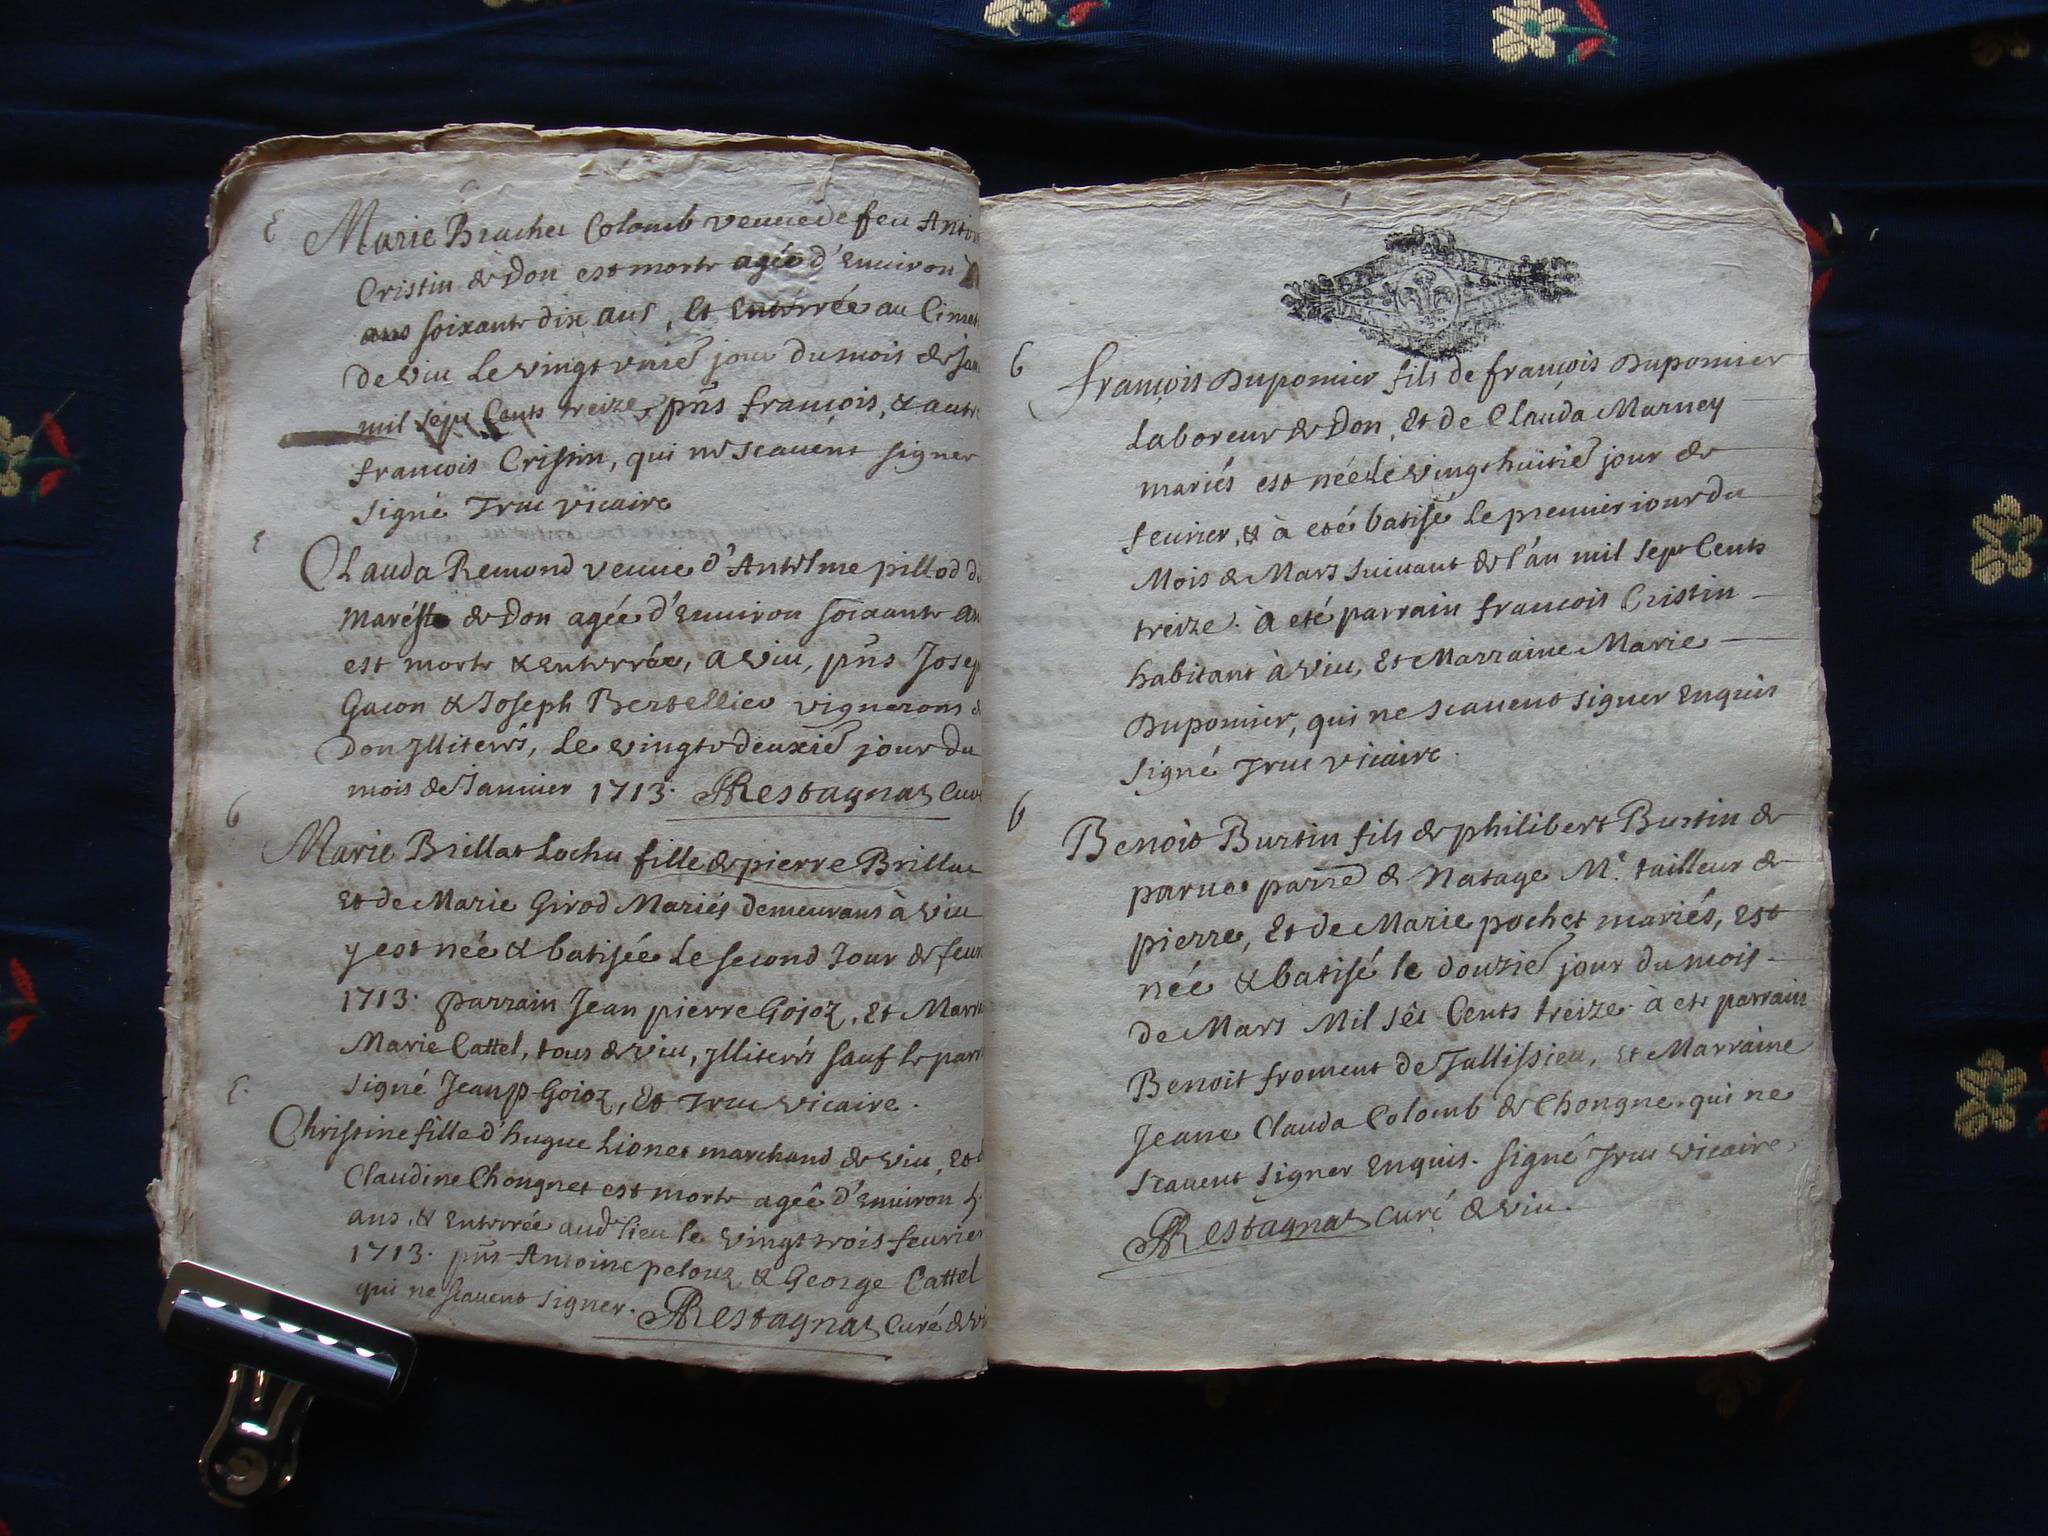 E Marie Brachet Colomb veuve de feu Antoi
Cristin de Don est morte agée d'Environ
ans soixante dix ans, Et Enterrée au Cimet
de viu Le vingt unie jour du mois de Jan
mil sept Cents treize, pns françois, & autre
françois Cristin, qui ne scavent signer
signé Truc vicaire
E Clauda Remond veuve d'Antelme pillod du
Mareste de Don agée d'Environ soixante an
est morte & Enterrée, a viu, pns Josep
Gacon & Joseph Bertellier vignerons d
Don Jlliterés, Le vingt deuxie jour du
mois de Janvier 1713. Restagnat Curé
6 Marie Brillat Lochu fille de pierre Brillat
Et de Marie Girod Mariés demeurans à viu
y est née & batisée Le second Jour de fevr
1713. parrain Jean pierre Gojoz, Et Marr
Marie Cattel, tous de viu, Jlliterés sauf le parr
signé Jean p Gojoz, Et Truc vicaire.
E. Christine fille d'hugue Lionet marchand de viu, Et d
Claudine Chongnet est morte agée d'Environ
ans, & Enterrée aud lieu le vingt trois fevrier
1713. pns Antoine pelouz & George Cattel
qui ne scavent signer. Restagnat Curé de vi
6 françois Dupomier fils de françois Dupomier
Laboreur de Don, Et de Clauda Marney
mariés est née Le vingt huitie jour de
fevrier, & à eté batisé Le premier jour du
Mois de Mars suivant de l'an mil sept Cents
treize. à eté parrain françois Cristin
habitant à viu, Et Marraine Marie
Dupomier, qui ne scavent signer Enquis
signé Truc vicaire.
6 Benoit Burtin fils de philibert Burtin de
parves parre de Natage Me. tailleur de
pierre, Et de Marie pochet mariés, est
née & batisé le douzie jour du mois
de Mars Mil sêt Cents treize à ete parrain
Benoit froment de Tallissieu, et Marraine
Jeane Clauda Colomb de Chongne. qui ne
scavent signer Enquis. signé Truc vicaire.
Restagnat curé de viu.